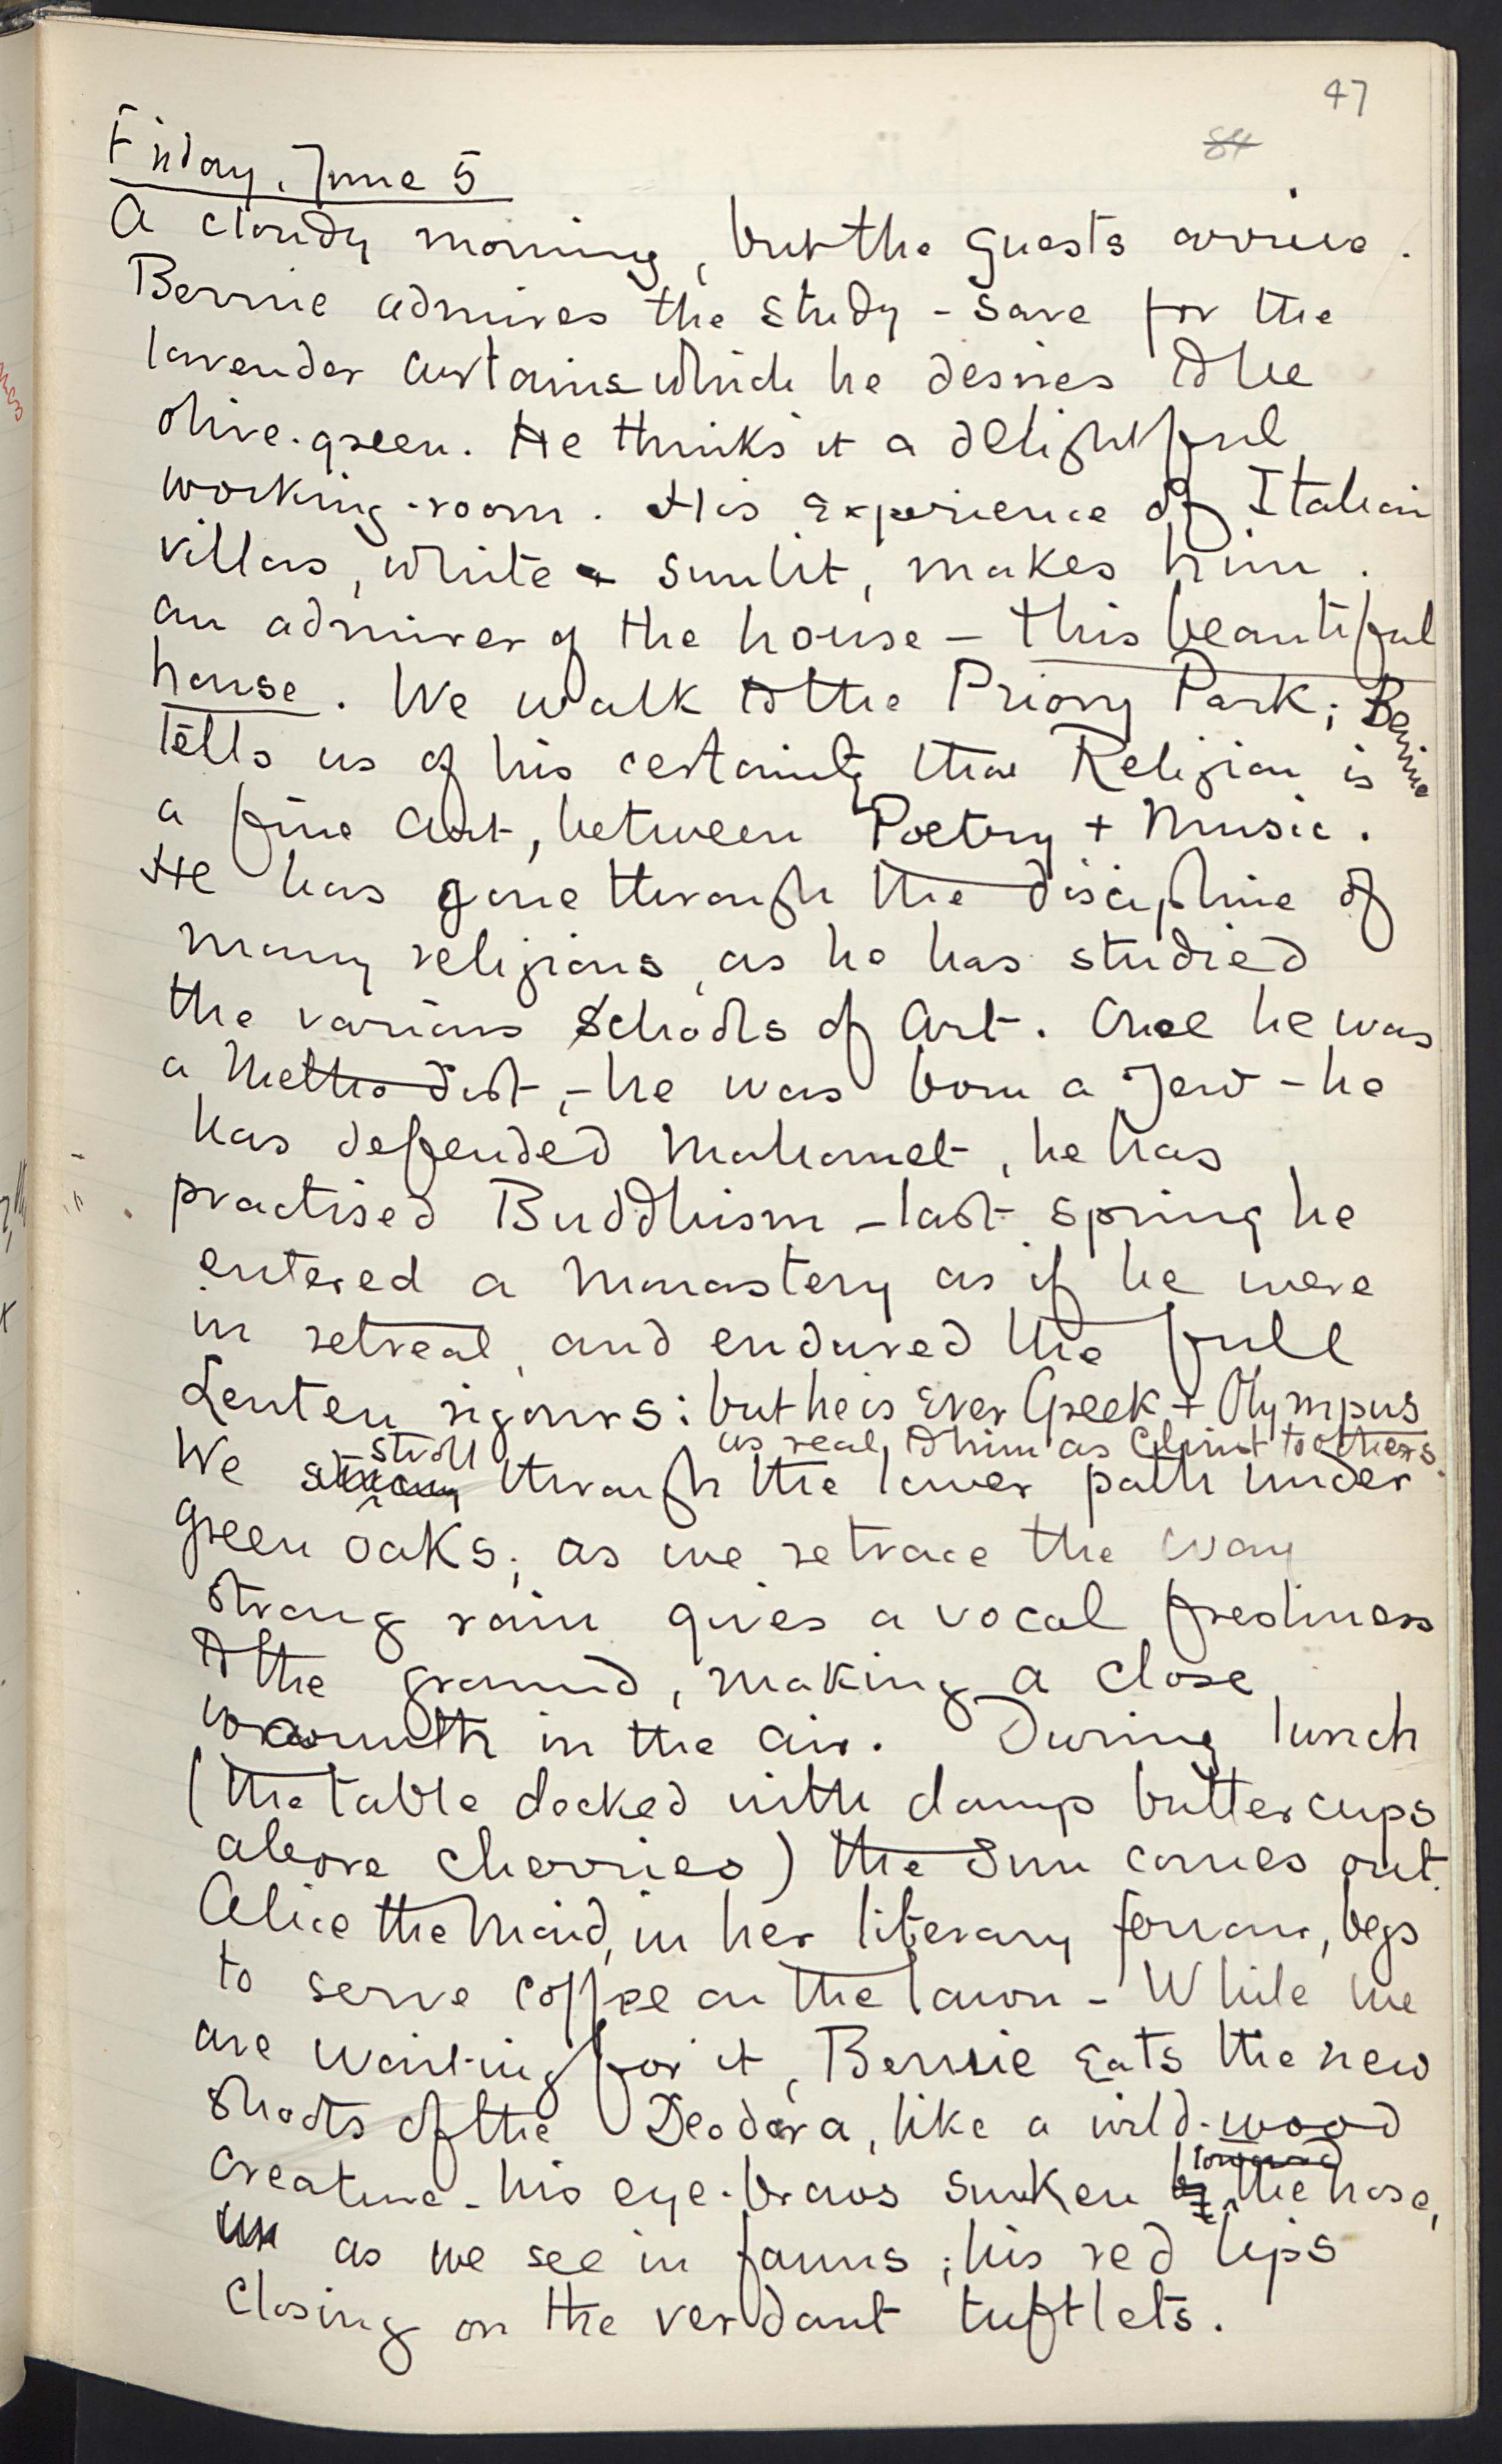 47
84
Friday, June 5
A cloudy morning, but the guests arrive.
Bernie admires the study - save for the
lavender curtains which he desires to be
olive-green. He thinks it a delightful
working-room. His experience of Italian
villas, white & sunlit, makes him
an admirer of the house - this beautiful
house. We walk to the Priory Park; Bernie
tells us of his certainty that Religion is
a fine Art, between Poetry + Music.
He has gone through the discipline of
many religions, as he has studied
the various Schools of Art. Once he was
a Methodist, - he was born a Jew - he
has defended Mahomet, he has
practised Buddhism - last spring he
entered a Monastery as if he were
in retreat, and endured the full
Lenten rigours: but he is ever Greek + Olympus
as real to him as Christ to others.
We stroll through the lower path under
green oaks; as we retrace the way
strong rain gives a vocal freshness
to the ground, making a close
warmth in the air. During lunch
(the table decked with damp buttercups
above cherries) the sun comes out.
Alice the Maid, in her literary , begs
to serve coffee on the lawn - While we
are waiting for it, Bernie eats the new
shoots of the Deodara, like a wild-wood
creature - his eye-brows sunken the nose,
as we see in fauns; his red lips
closing on the verdant tuftlets.